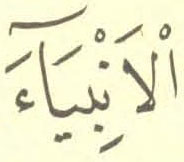 الْاَنِۢبْيَآءَ